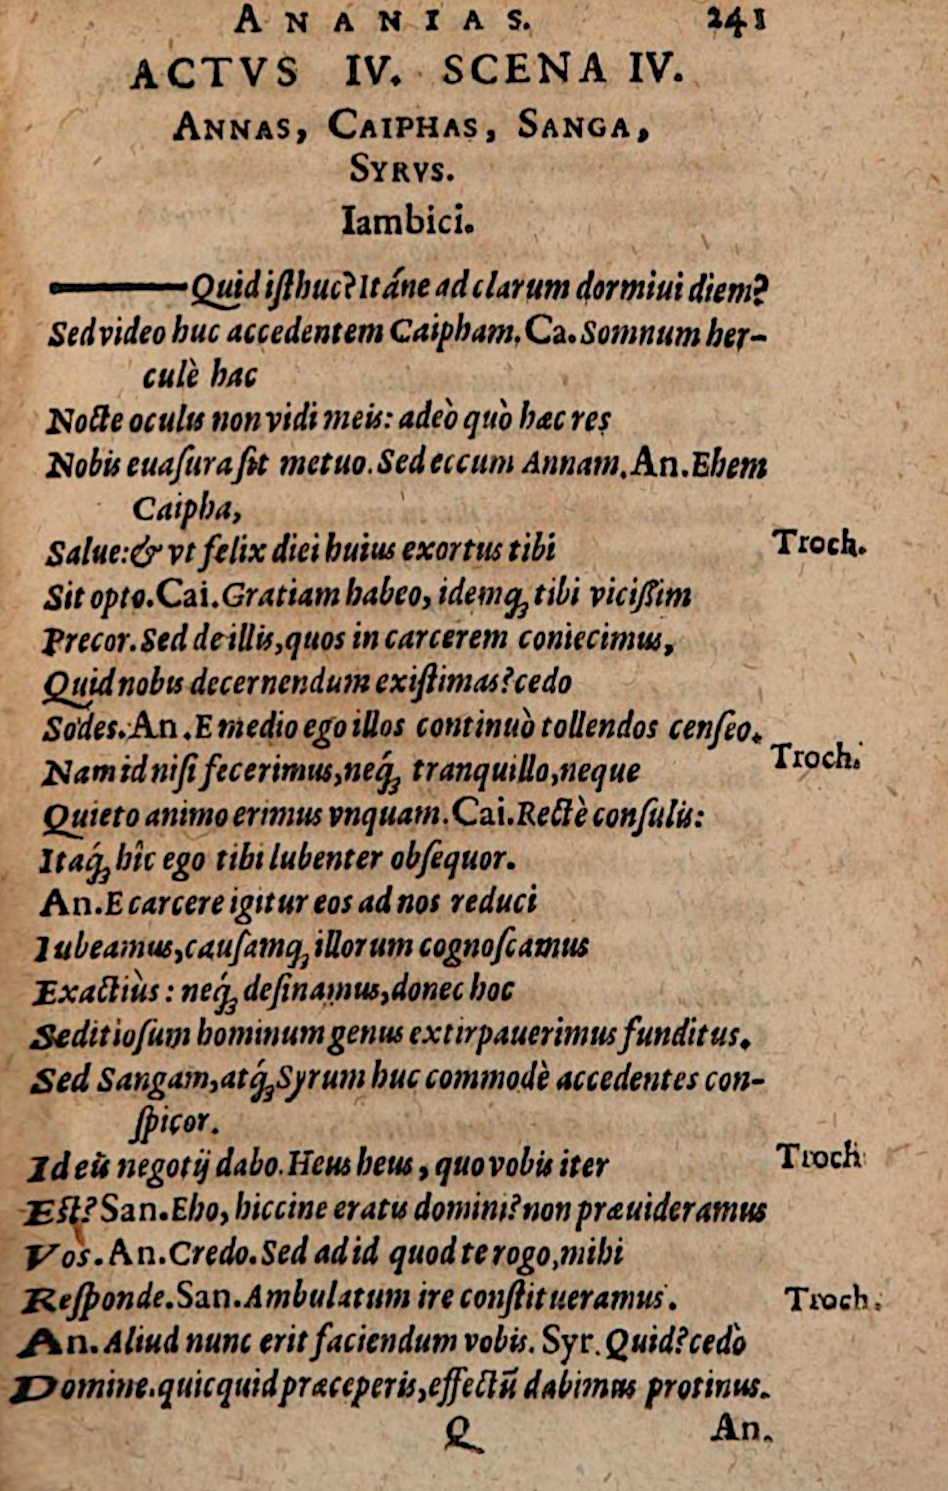 ANANIAS. 241
ACTVS IV. SCENA IV.
ANNAS, CAIPHAS, SANGA,
SYRVS.
Iambici.
———Quid iſthuc? Itáne ad clarum dormiui diem?
Sed video huc accedentem Caipham. Ca. Somnum her-
culè hac
Nocte oculis non vidi meis: adeò quò hæc res
Nobis euaſura ſit metuo. Sed eccum Annam. An. Ehem
Caipha,
Salue: & vt felix diei huius exortus tibi Troch.
Sit opto. Cai. Gratiam habeo, idemq́; tibi viciſſim
Precor. Sed de illis, quos in carcerem coniecimus,
Quid nobis decernendum exiſtimas? cedo
Sodes. An. E medio ego illos continuò tollendos cenſeo.
Nam id niſi fecerimus, neq́; tranquillo, neque Troch.
Quieto animo erimus vnquam. Cai. Rectè conſulis:
Itaq́; hîc ego tibi lubenter obſequor.
An. E carcere igitur eos ad nos reduci
Iubeamus, cauſamq; illorum cognoſcamus
Exactiùs: neq́; deſinamus, donec hoc
Seditioſum hominum genus extirpauerimus funditus.
Sed Sangam, atq́; Syrum huc commodè accedentes con-
ſpicor.
Id eû negotij dabo. Heus heus, quo vobis iter Troch
Eſt? San. Eho, hiccine eratis domini? non præuideramus
Vos. An. Credo. Sed ad id quod te rogo, mihi
Reſponde. San. Ambulatum ire conſtitueramus. Troch.
An. Aliud nunc erit faciendum vobis. Syr. Quid? cedò
Domine. quicquid præceperis, effectū dabimus protinus.
Q An.